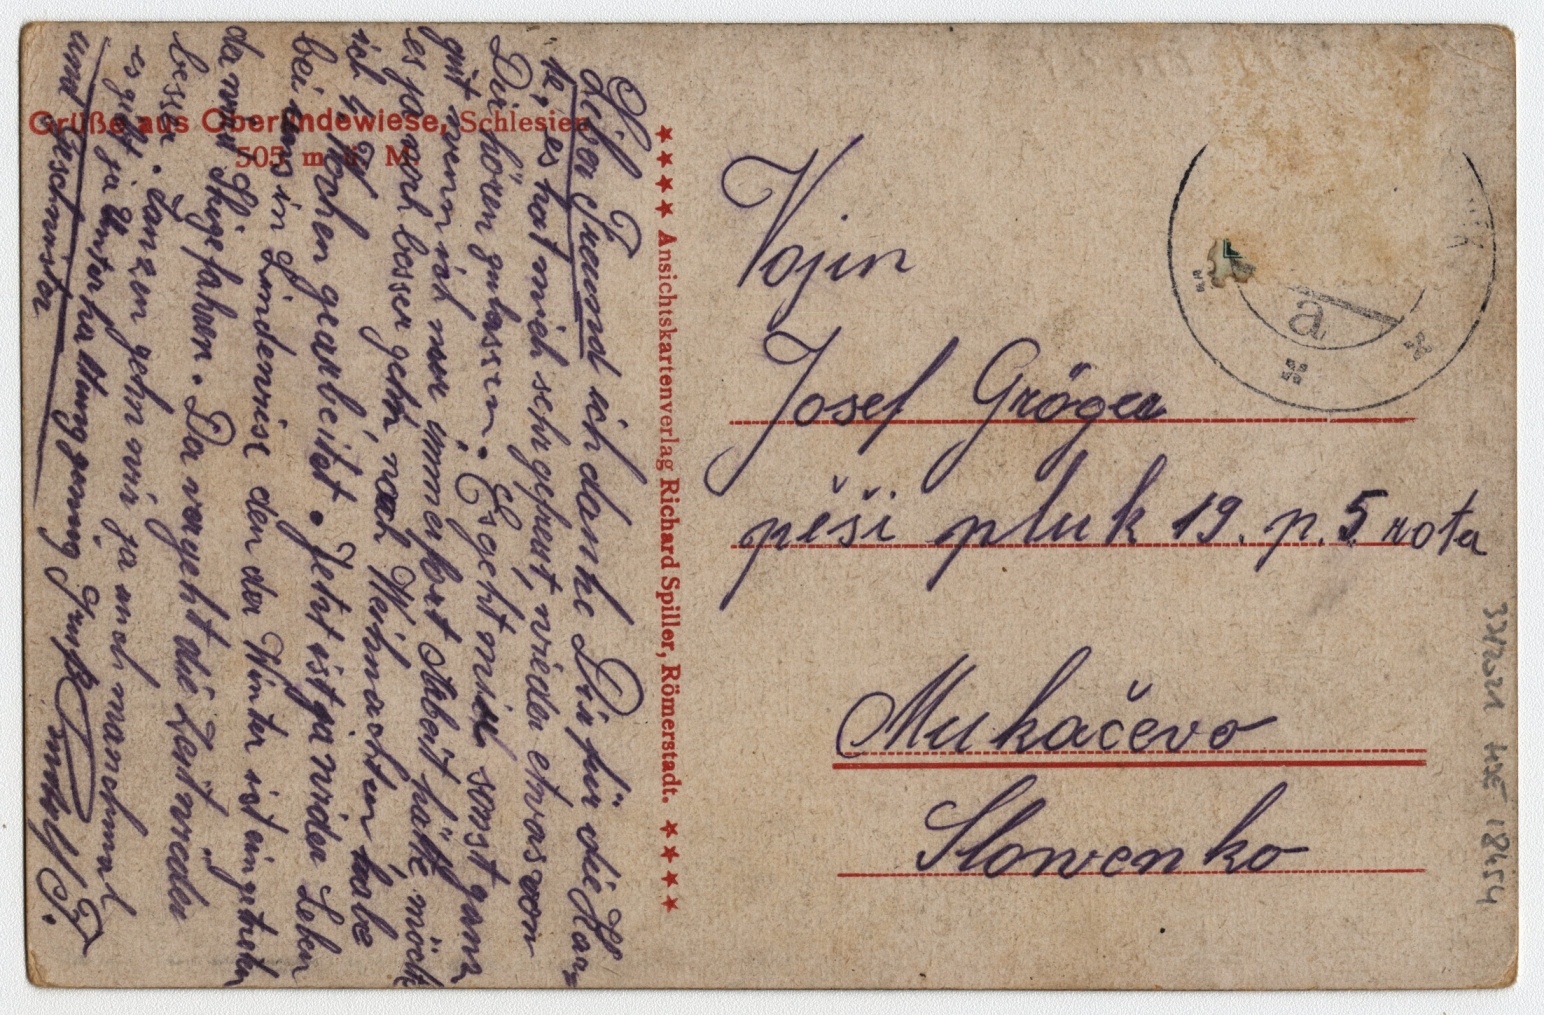 Grüße aus Oberlindewiese, Schlesien
505 m ü. M.
Lieber Freund ich danke Dir für die Kar-
te, es hat mich sehr gefreut, wieder etwas von
Dir hören gelassen. Es geht mich sonst ganz
gut wenn ich nur immer Arbeit hätte möcht
es noch besser gehn, nach Weihnachten habe
ich Wochen gearbeitet. Jetzt ist ja wieder Leben
bei uns in Lindewiese den der Winter ist eingetreten
da wird Ski gefahren. Da vergeht die Zeit wieder
besser. Tanzen gehn wir ja auch manchmal
es gibt ja Unterhaltung genug Gruß Rudolf F.
und Geschwister
★★★★ Ansichtskartenverlag Richard Spiller, Römerstadt. ★★★★
a
Vojin
Josef Gröger
pěši pluk 19. p. 5 rota
Mukačevo
Slowenko